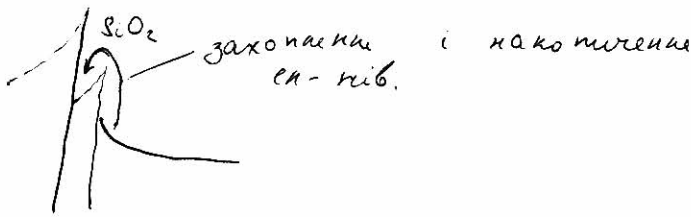 SiO₂
захоплення і накопичення
ел-нів.